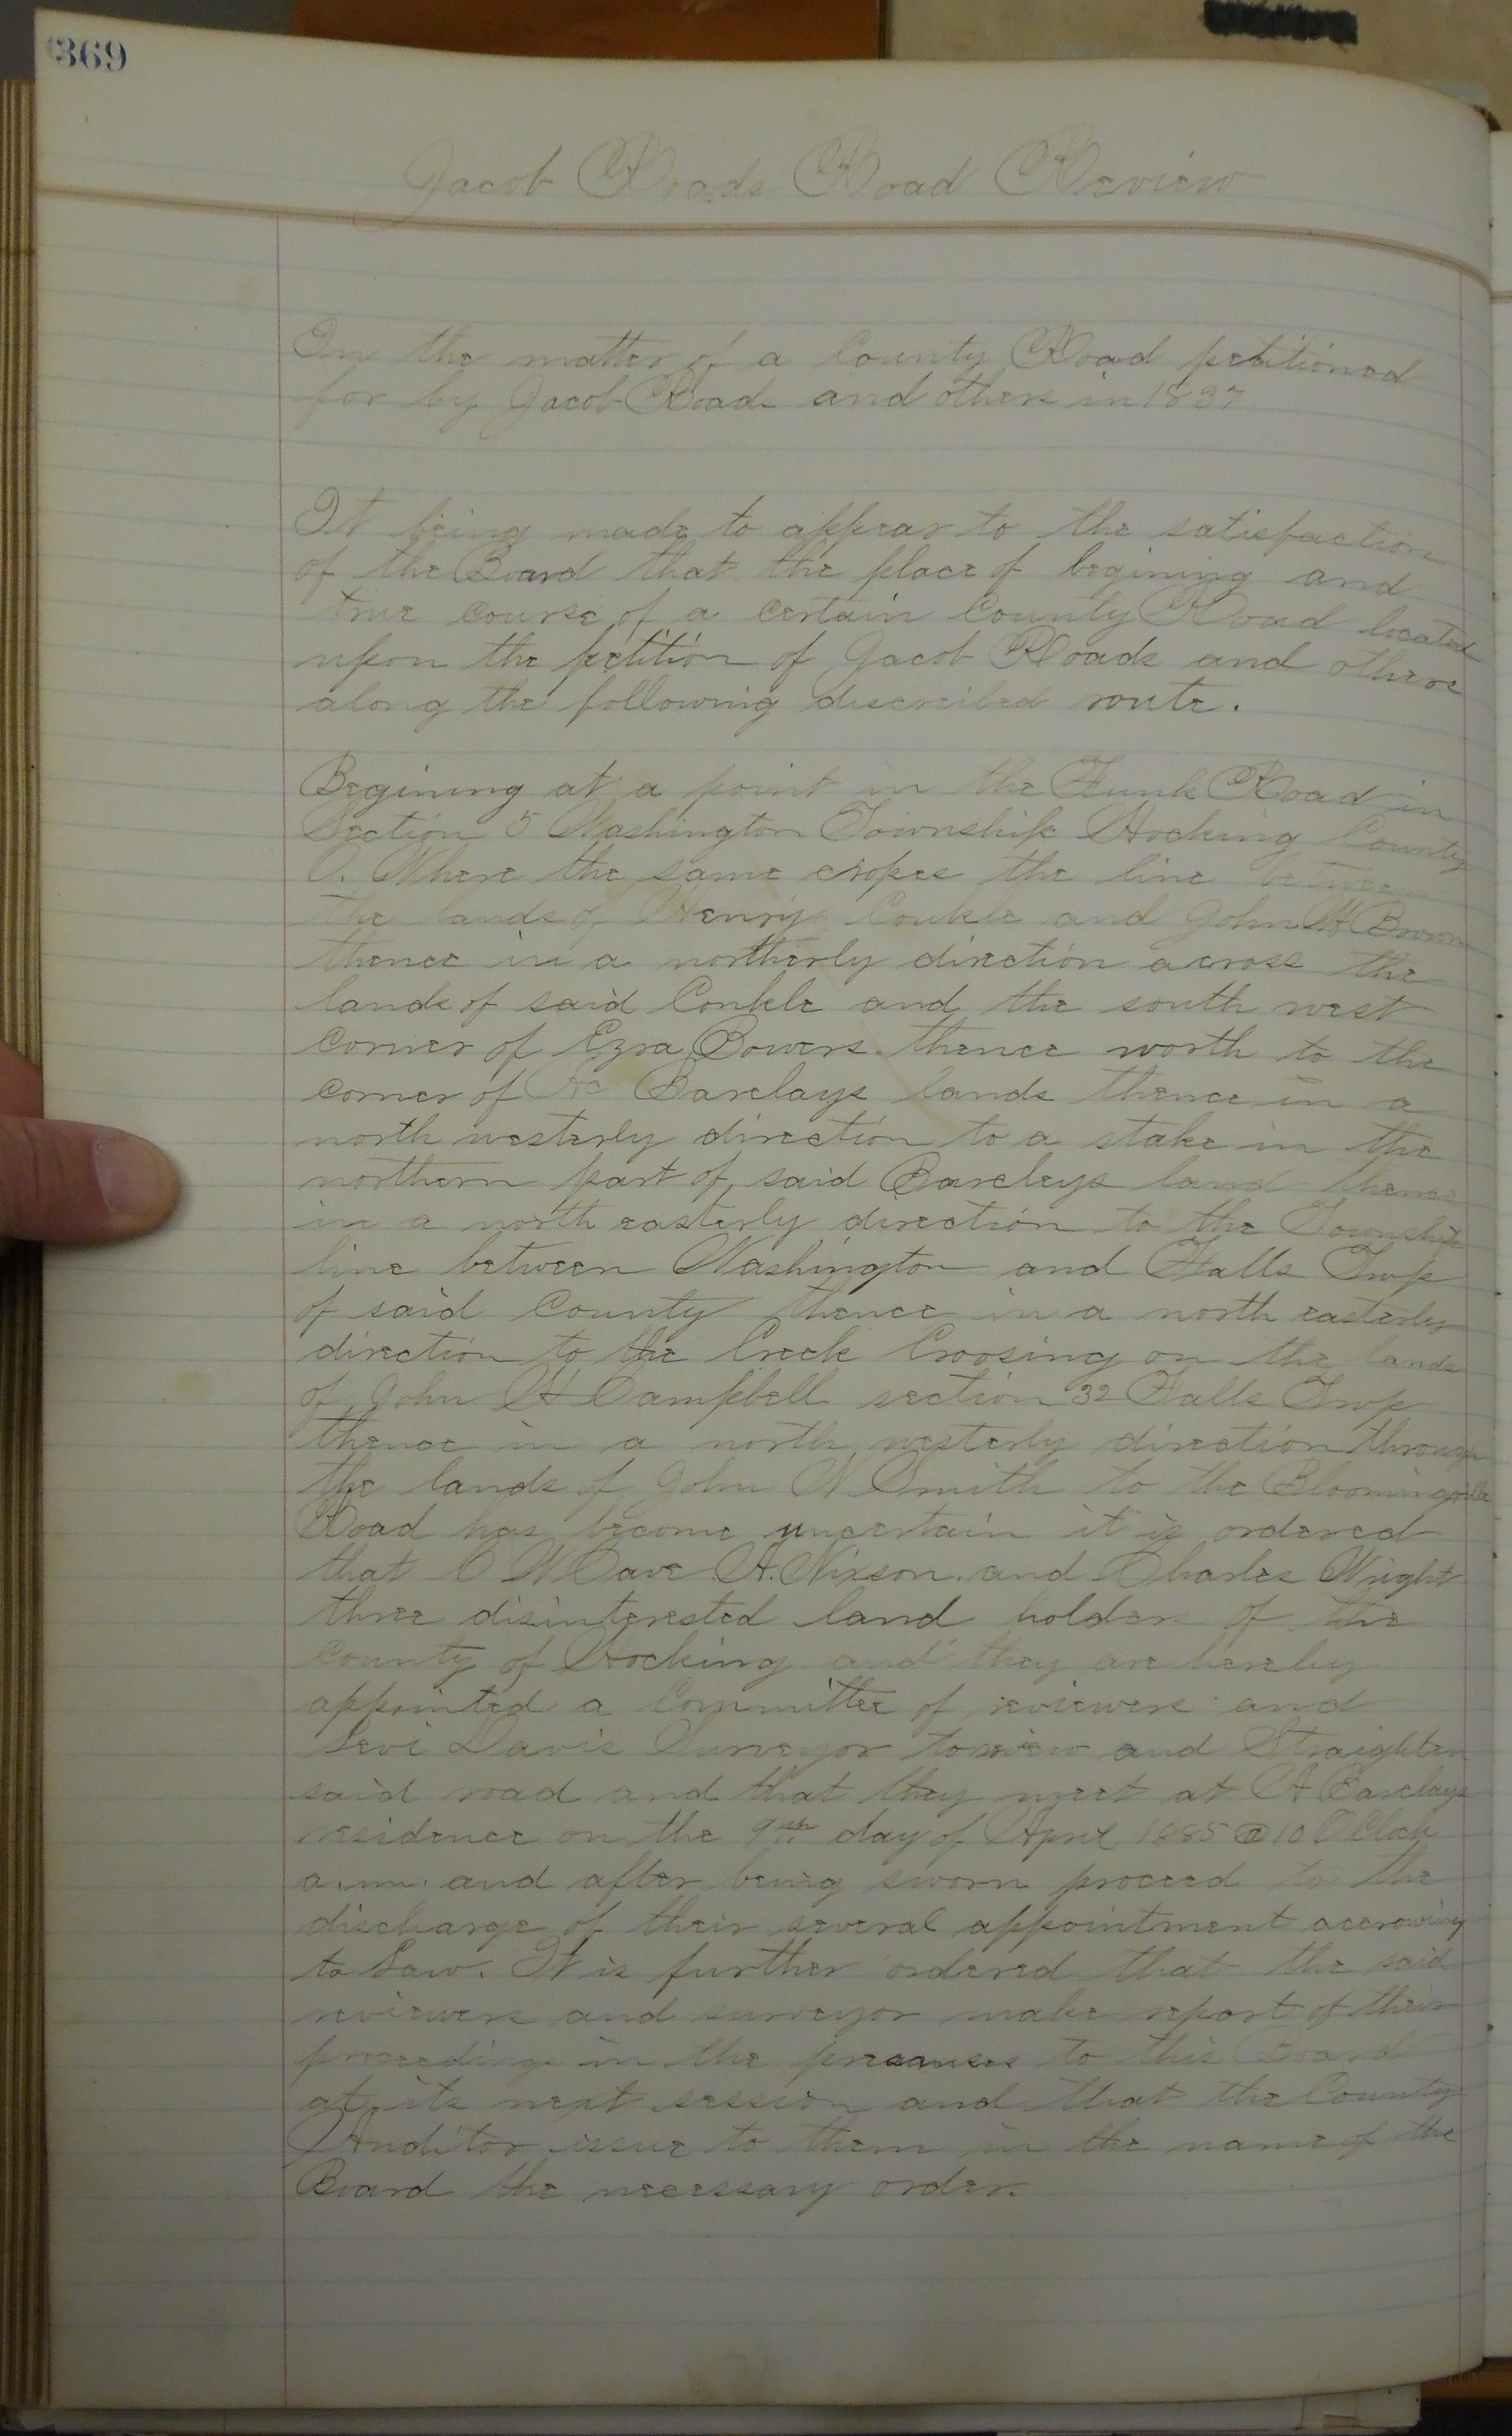 369
Jacob Roads Road Review
In the matter of a County Road petitioned
for by Jacob Roads and others in 1837
It being made to appear to the satisfaction
of the Board that the place of begining and
true course of a certain County Road located
upon the petition of Jacob Roads and others
along the following described route.
Begining at a point in the Funk Road in
Section 5 Washington Township Hocking County
O. Where the same crosses the line between
the lands of Henry Conkle and John W Brown
thence in a northerly direction across the
lands of said Conkle and the south west
corner of Ezra Bowers thence north to the
corner of Barclays lands thence in a
north westerly direction to a stake in the
northern part of said Barclays land thence
in a north easterly direction to the Township
line between Washington and Falls Twp
of said County thence in a north easterly
direction to the Creek Croosing on the lands
of John H Campbell section 32 Falls Twp
thence in a north westerly direction through
the lands of John N Smith to the Bloomingville
Road has become uncertain it is ordered
that C W Cave A. Nixson. and Charles Wright
three disinterested land holders of the
county of Hocking and they are hereby
appointed a Committee of reviewers and
Levi Davis Surveyor to review and Straighten
said road and that they meet at A Barclays
residence on the 9th day of April 1885 @ 10 OClock
a.m. and after being sworn proceed to the
discharge of their several appointment accrowing
to Law. It is further ordered that the said
reviewers and surveyor make report of their
proceedings in the premises to this Board
at its next session and that the County
Auditor issue to them in the name of the
Board the necessary order.